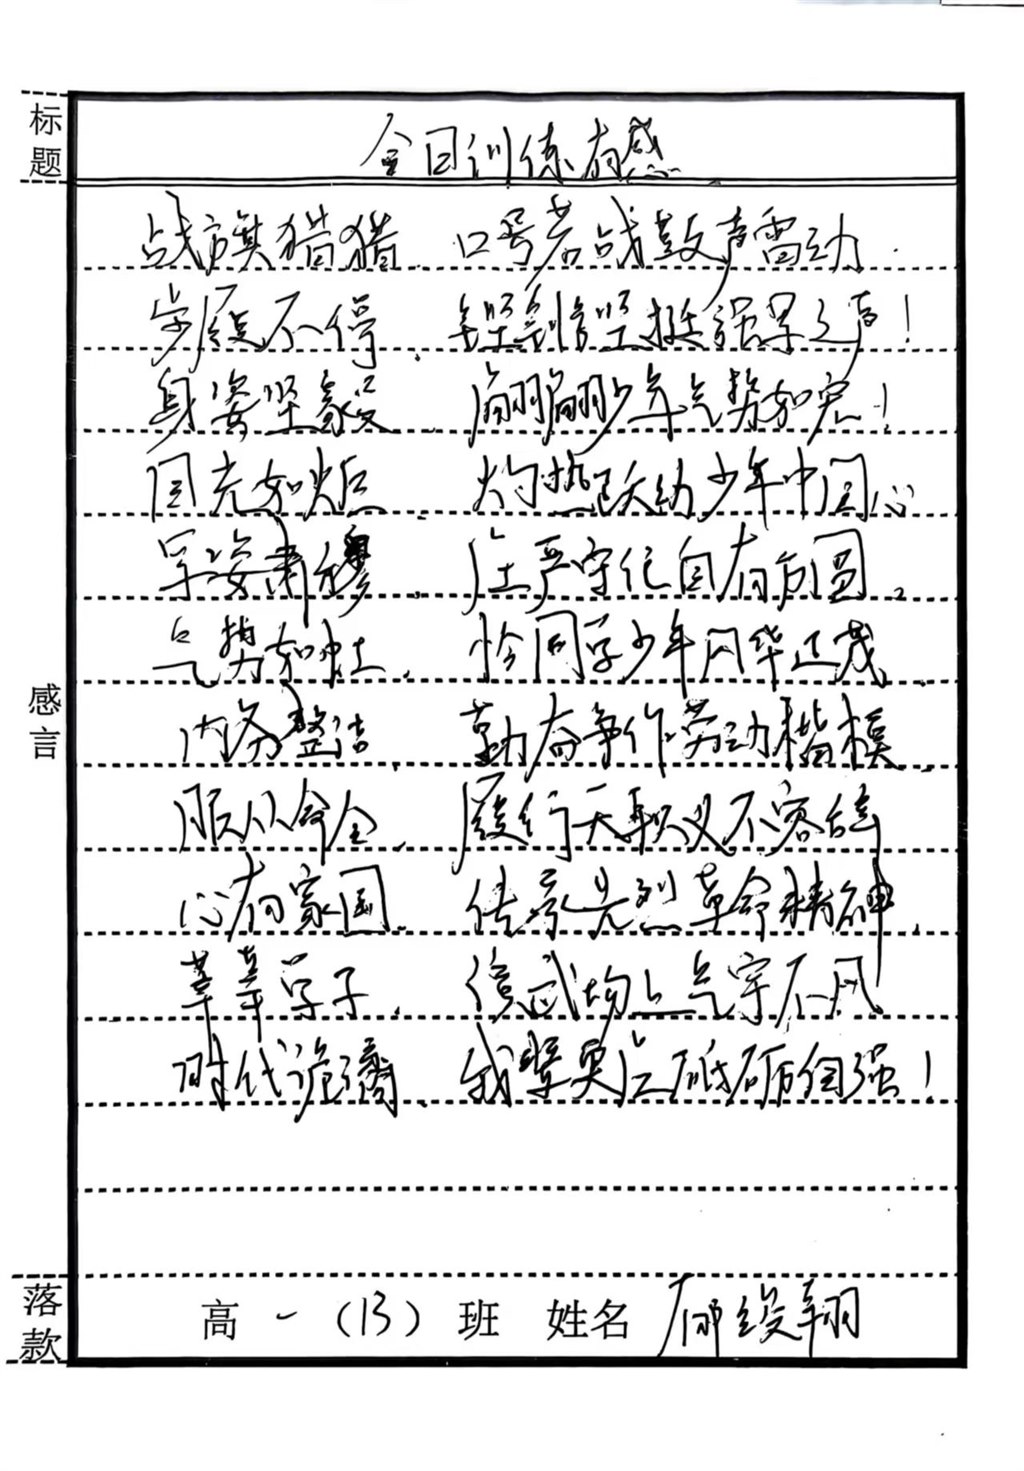 标题
今日训练有感
战旗猎猎. 口号若战鼓声雷动.
步履不停. 铿锵坚挺强军之声!
身姿坚毅. 翩翩少年气势如宏!
目光如炬. 灼热跃动少年中国心
军姿肃穆. 庄严守纪自有方圆.
气势如虹. 恰同学少年风华正茂.
内务整洁. 勤奋争作劳动楷模.
服从命令. 履行天职义不容辞
心有家国. 传承先烈革命精神.
莘莘学子. 演武场上气宇不凡
时代诡谲. 我辈更应砥砺自强!
感言
落款 高一(13)班 姓名 翔